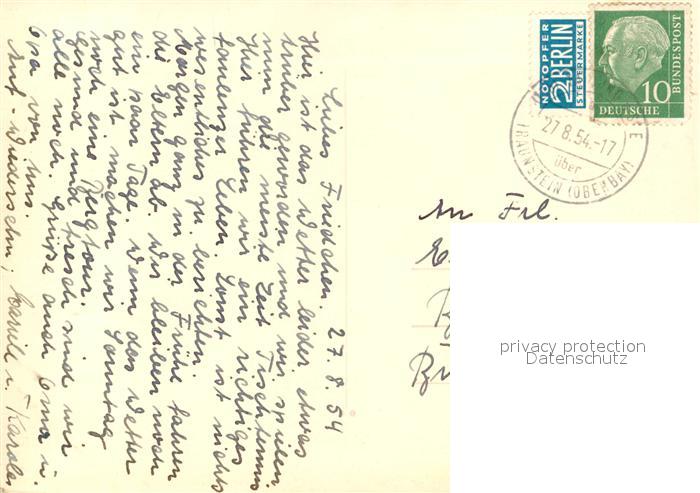 27.8.54
Liebes Friedchen.
Hier ist das Wetter leider etwas
trüber geworden und wir spielen
nun die meiste Zeit Tischtennis
Hier führen wir ein richtiges
Leben. Sonst ist nichts
wesentliches zu berichten.
Morgen ganz in der Frühe fahren
die Eltern ab. Wir bleiben noch
ein paar Tage. Wenn das Wetter
gut ist machen wir Sonntag
noch eine Bergtour.
gesund und frisch sind wir
alle noch. Grüße auch Oma u.
Opa von uns.
Auf Wiedersehn,
NOTOPFER
2 BERLIN
STEUERMARKE
DEUTSCHE
BUNDESPOST
10
27.8.54.-17
über
TRAUNSTEIN (OBERBAY)
An Frl.
privacy protection
Datenschutz